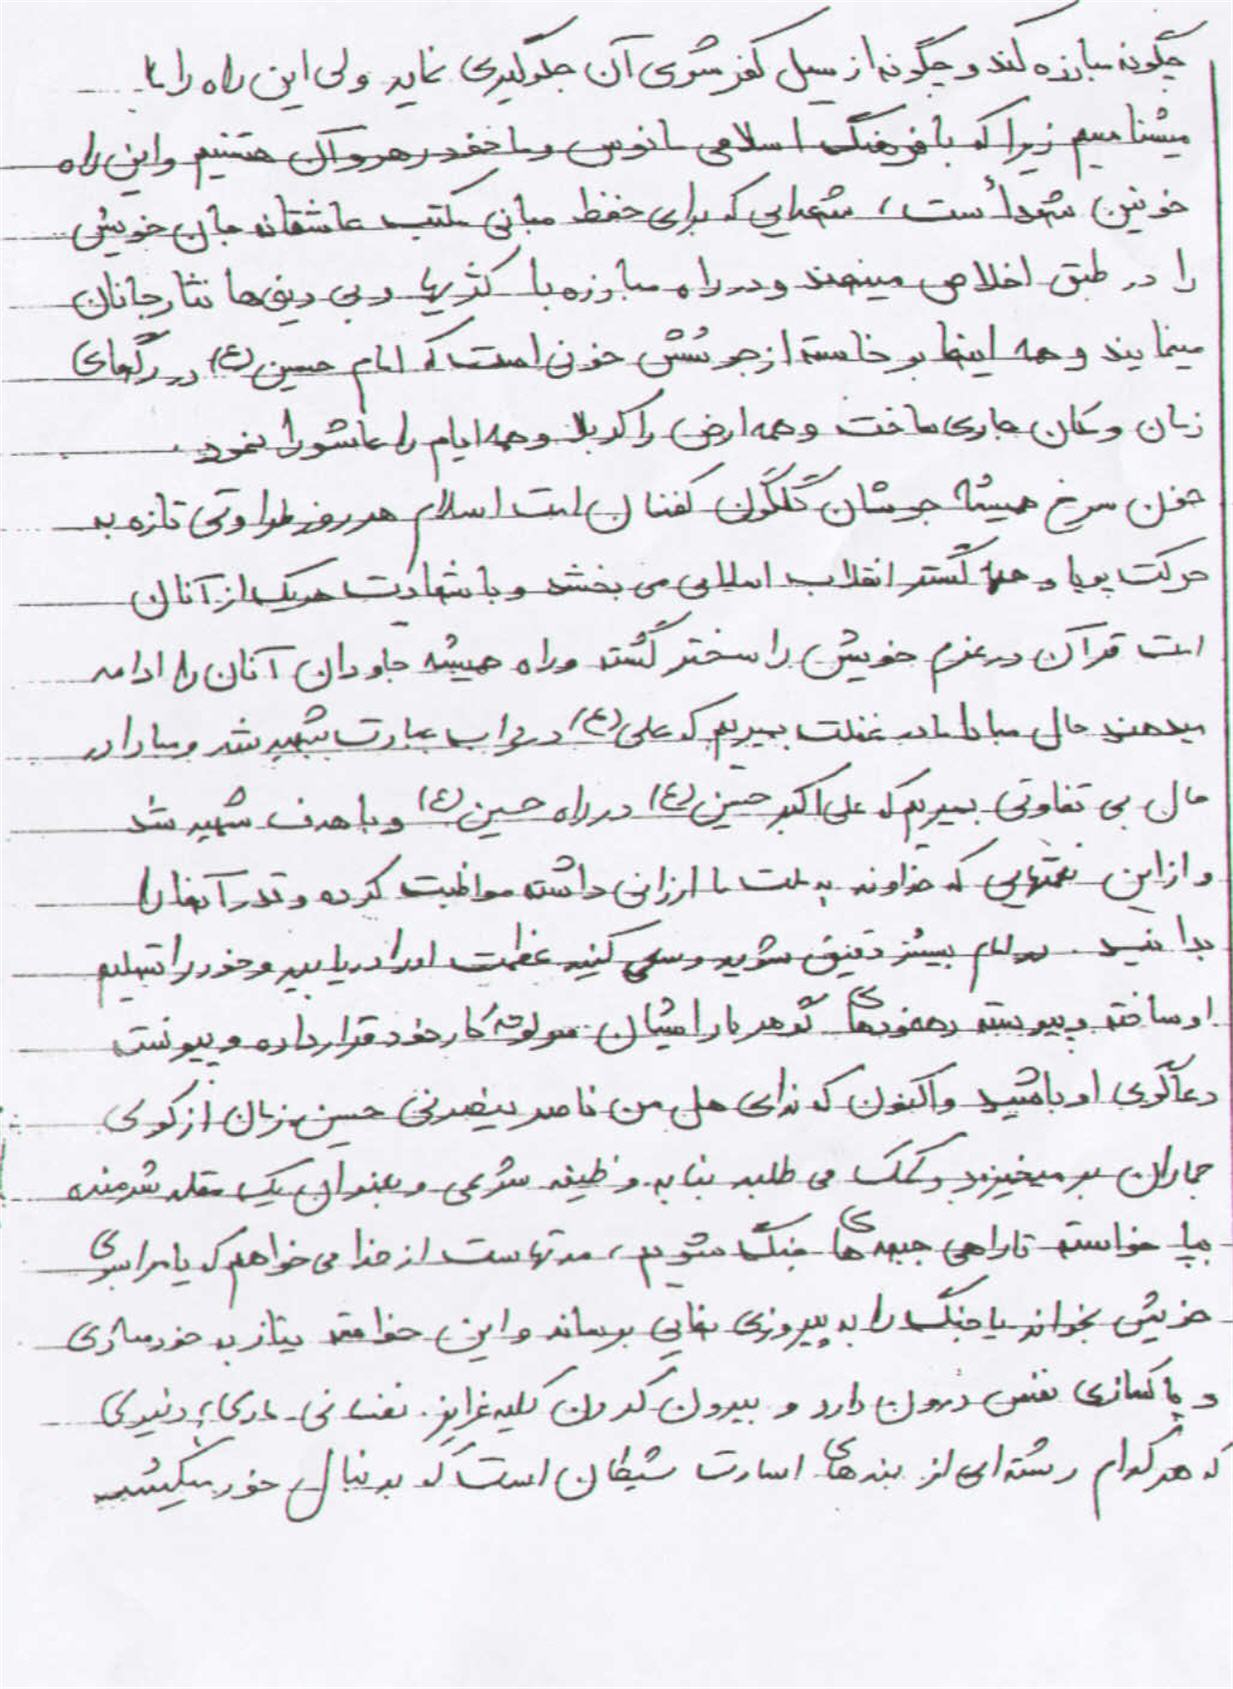 چگونه مبارزه کند و چگونه از سیل کفر شوی آن جلوگیری نماید ولی این راه را ما
میشناسیم زیرا که با فرهنگ اسلامی مانوس و ما خود رهرو آن هستیم و این راه
خونین شهداست ، شهدایی که برای حفظ مبانی مکتب عاشقانه جان خویش
را در طبق اخلاص مینهند و در راه مبارزه با کژیها و بی دینی‌ها نثار جانان
مینمایند و همه اینها برخاسته از جوشش خونی است که امام حسین (ع) در رگهای
زمان و مکان جاری ساخت و همه ارض را کربلا و همه ایام را عاشورا نمود .
خون سرخ همیشه جوشان گلگون کفنان است اسلام هر روز طراوتی تازه به
حرکت پویا و همه گستر انقلاب اسلامی می بخشد و با شهادت هریک از آنان
امت قرآن در عزم خویش راسختر گشته و راه همیشه جاودان آنان را ادامه
میدهند حال مبادا ما در غفلت بمیریم که علی (ع) در محراب عبادت شهید شد و مبادا در
حال بی تفاوتی بمیریم که علی اکبر حسین (ع) در راه حسین (ع) و با هدف شهید شد
و از این نعمتهایی که خداوند به ملت ما ارزانی داشته مواظبت کرده و قدر آنها را
بدانید . در امام بیشتر دقیق شوید و سعی کنید عظمت او را دریابید و خود را تسلیم
او ساخته و پیوسته رهنمودهای گوهر بار ایشان سرلوحه کار خود قرار داده و پیوسته
دعاگوی او باشید و اکنون که ندای هل من ناصر ینصرنی حسین زمان از کوی
جماران بر میخیزد و کمک می طلبد بنا به وظیفه شرعی و بعنوان یک مقلد شرمنده
بپا خواسته تا راهی جبهه‌های جنگ شویم ، مدتهاست از خدا می خواهم که یا مرا بسوی
خویش بخواند یا جنگ را به پیروزی نهایی برساند و این خواسته نیاز به خودسازی
و پاکسازی نفس درون دارد و بیرون کردن کلیه غرایز نفسانی ـ مادی ، دنیوی
که هر کدام رشته ایی از بندهای اسارت شیطان است که بدنبال خود میکشد